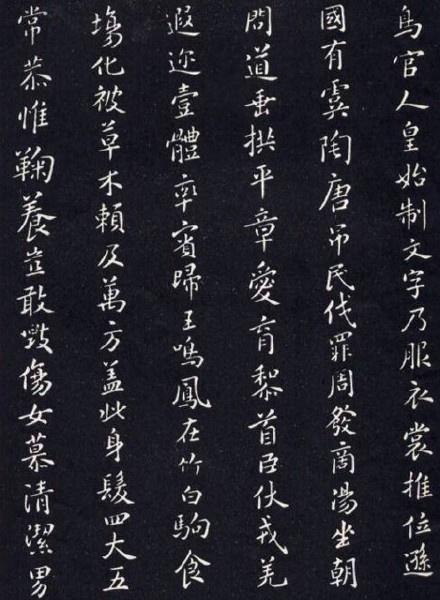 鳥官人皇始制文字乃服衣裳推位遜
國有虞陶唐吊民伐罪周發商湯坐朝
問道垂拱平章愛育黎首臣伏戎羌
遐迩壹體率賓歸王鳴鳳在竹白駒食
塲化被草木賴及萬方盖此身髮四大五
常恭惟鞠養豈敢毀傷女慕清潔男